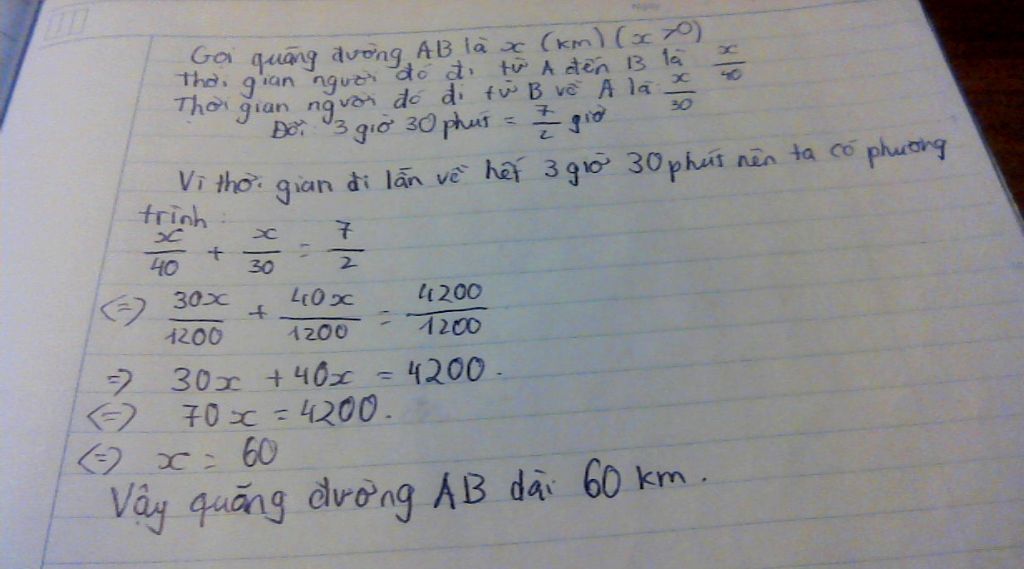 Gọi quãng đường AB là x (km) (x > 0)
Thời gian người đó đi từ A đến B là x/40
Thời gian người đó đi từ B về A là x/30
Đổi: 3 giờ 30 phút = 7/2 giờ
Vì thời gian đi lẫn về hết 3 giờ 30 phút nên ta có phương
trình:
x/40 + x/30 = 7/2
<=> 30x/1200 + 40x/1200 = 4200/1200
=> 30x + 40x = 4200.
<=> 70x = 4200.
<=> x = 60
Vậy quãng đường AB dài 60 km.